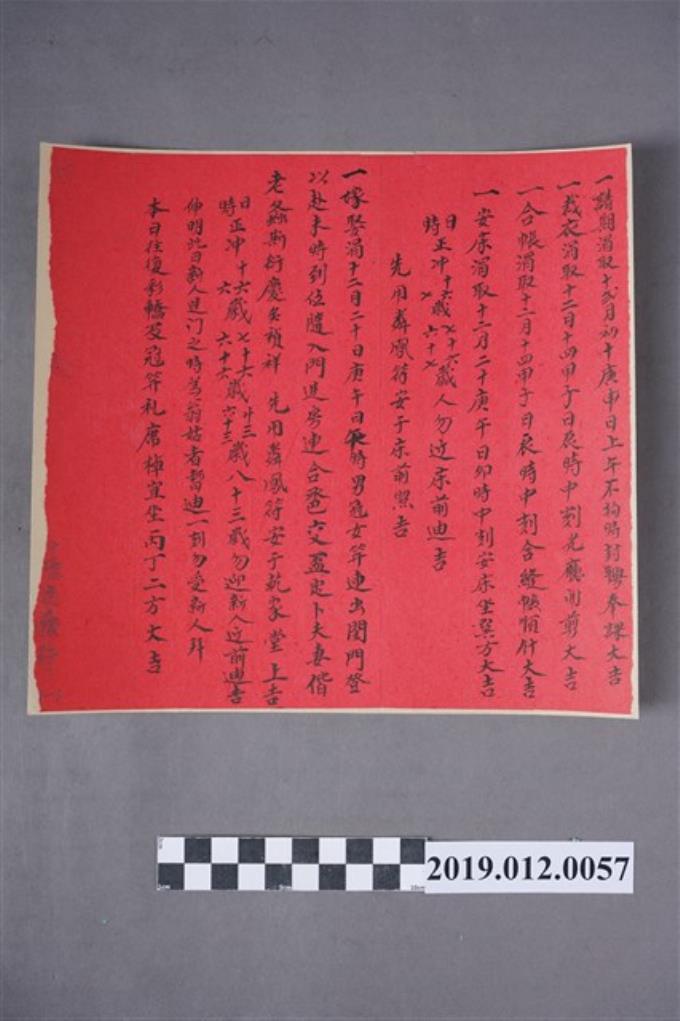 一請期涓取十弍月初十庚申日上午不拘時封聘奉課大吉
一裁衣涓取十二日十四甲子日辰時中刻光廳開剪大吉
一合帳涓取十二月十四甲子日辰時中刻合縫帳順針大吉
一安床涓取十二月二十庚午日卯時中刻安床坐巽方大吉
日時正冲十六歲七十六歲人勿近床前迪吉
七 六十七
先用麟鳳符安于床前照吉
一嫁娶涓十二月二十日庚午日辰時男冠女笄連出閨門登
以赴未時到位隨入門進房連合卺交盃定卜夫妻偕
老螽斯衍慶長禎祥 先用麟鳳符安于乾家堂上吉
日時正冲十六歲七十六歲廾三歲八十三歲勿迎新人近前迪吉
六歲 六十六 六十三
伸明此日新人進门之時為翁姑者暫迪一刻勿受新人拜
本日往復彩轎及冠笄礼席棹宜坐丙丁二方大吉
2019.012.0057